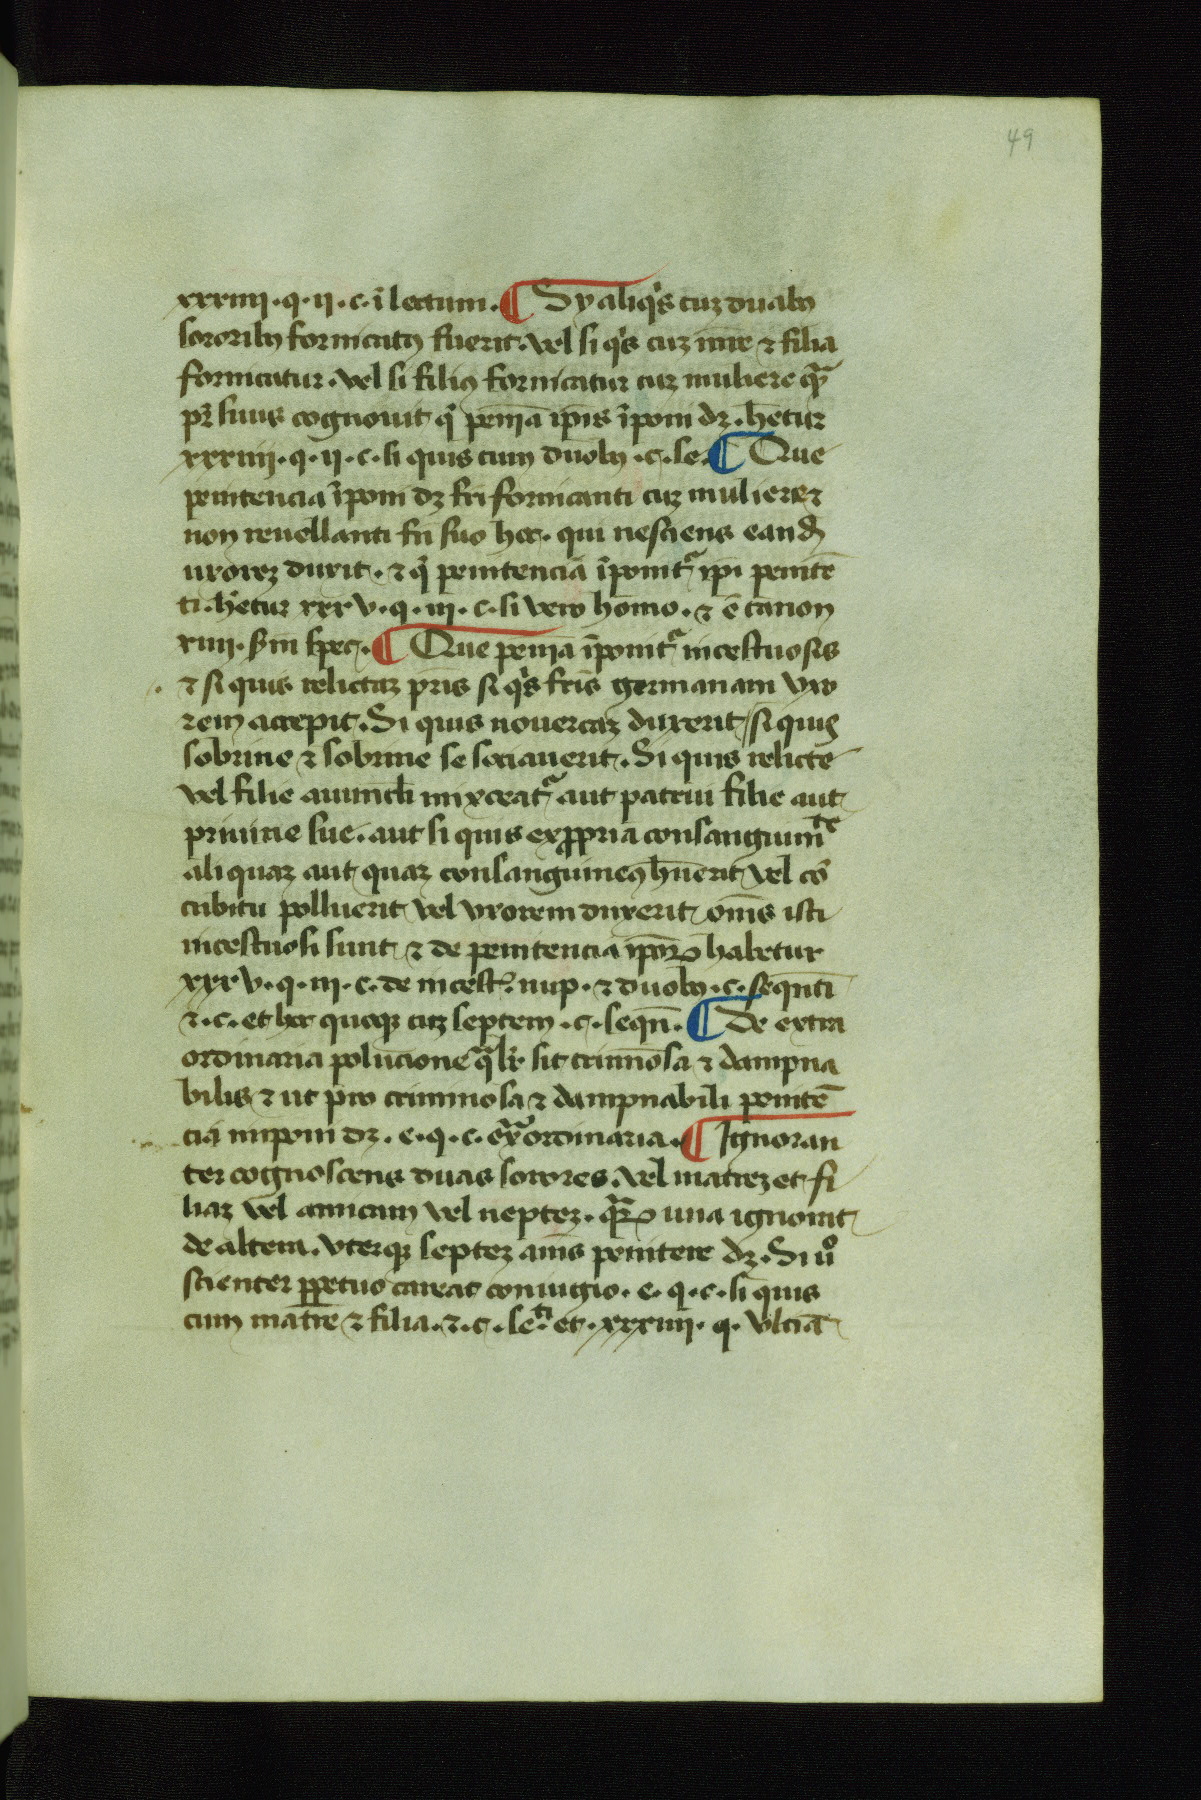 49
xxxiiii · q · ii · c · ī lectum · ¶ Sy aliqͥs cuz duabꝫ
sororibꝫ fornicatꝰ fuerit · vel si qͥs cuz mr̄e ⁊ filia
fornicatur · vel si filiꝰ fornicatur cuz muliere quā
pr̄ suus cognouit qͥ penīa ip̄is īponi dꝫ · hētur
xxxiiii · q · ii · c · si quis cum duobꝫ · c · se · ¶ Que
penitencia īponi dꝫ fr̄i fornicanti cuz muliere ⁊
non reuellanti fr̄i suo hoc · qui nesciens eandē
uxorez duxit · ⁊ qͥ penitencia īponitᷣ ip̄i penitē
ti · hētur xxxv · q · iii · c · si vero homo · ⁊ ē canon
¶ Que penīa īponitᷣ incestuosis
⁊ si quis relictaz pr̄is si qͥs fr̄is germanam vxo
rem accepit · Si quis nouercaz duxerit / si quis
sobrine ⁊ sobrine se sociauerit · Si quis relicte
vel filie auunculi mixceatᷣ aut patrui filie aut
priuine sue · aut si quis ex ꝓpria consanguinitate
aliquaz aut quaz consanguineꝰ hūerit vel cō
cubitu polluerit vel vxorem duxerit om̄s isti
incestuosi sunt ⁊ de penitencia ip̄oꝝ habetur
xxxv · q · iii · c · de incest · nup · ⁊ duobꝫ · c · sequn̄ti
⁊ · c · et hec quoqꝫ cuz septem · c · sequn̄ · ¶ De extra
ordinaria polucione qualr̄ sit criminosa ⁊ dampna
bilis ⁊ ut pro criminosa ⁊ dampnabili penitē
cia imponi dꝫ · e · q · c · ex̄ordinaria · ¶ Ignoran
ter cognoscens duas sorores · vel matrez et fi
liaz vel amicam vel neptez · quaꝝ una ignorat
de altera · vterqꝫ septez an̄is penitere dꝫ · Si uº
scienter ꝑpetuo careat coniugio · e · q · c · si quis
cum matre ⁊ filia · ⁊ · c · se · et · xxxiiii · q · vlciā